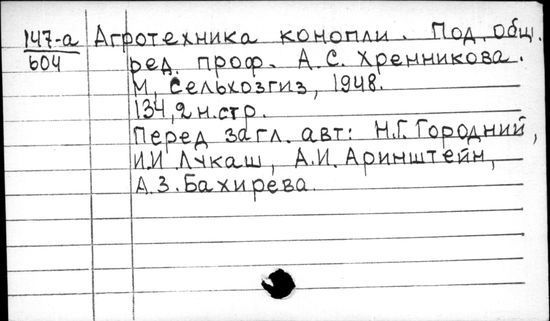 147-а Агротехника конопли. Под общ.
604 ред. проф. А.С. Хренникова.
М, Сельхозгиз, 1948.
134,2 н.стр.
Перед загл. авт: Н.Г. Городний,
И.И Лукаш, А.И. Аринштейн,
А.З. Бахирева.